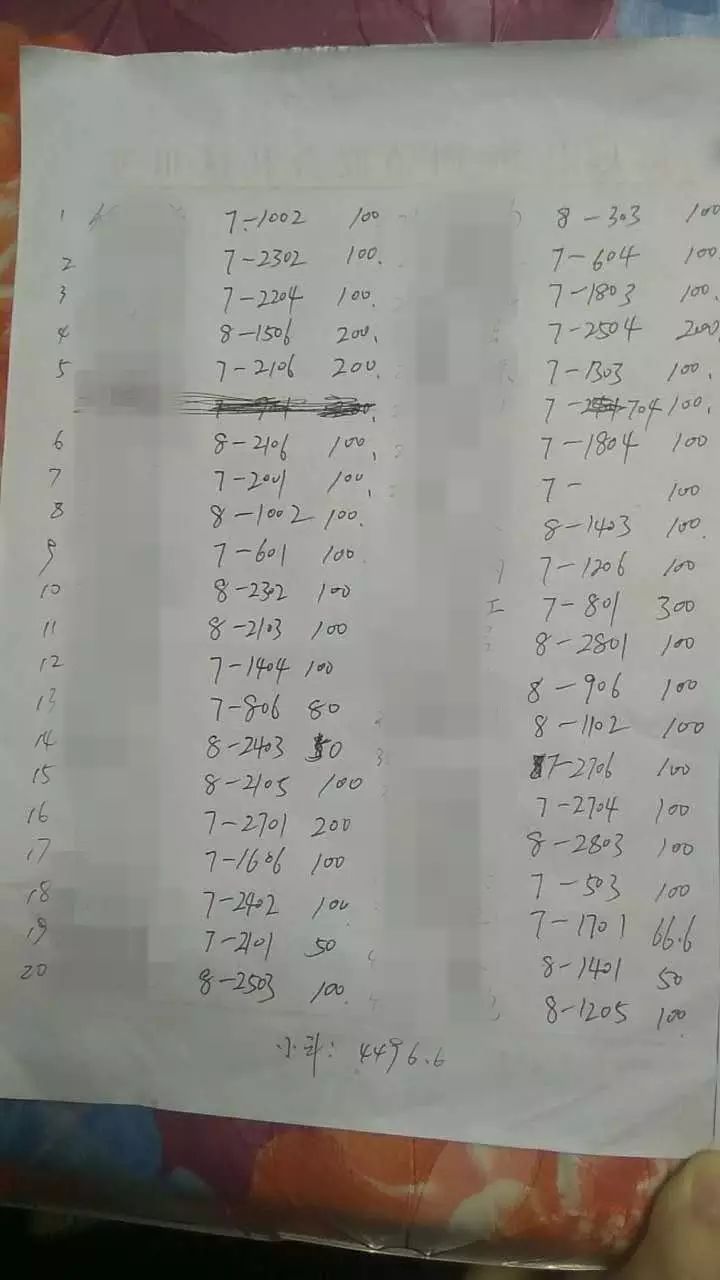 1 7-1002 100 8-303 100
2 7-2302 100. 7-604 100.
3 7-2204 100. 7-1803 100.
4 8-1506 200. 7-2504 200
5 7-2106 200. 7-1303 100.
7-704 100.
6 8-2106 100. 7-1804 100
7 7-2001 100. 7- 100
8 8-1002 100. 8-1403 100.
9 7-601 100. 7-1206 100
10 8-2302 100 7-801 300
11 8-2103 100 8-2801 100
12 7-1404 100 8-906 100
13 7-806 80 8-1102 100
14 8-2403 50 7-2706 100
15 8-2105 100 7-2704 100
16 7-2701 200 8-2803 100
17 7-1606 100 7-503 100
18 7-2402 100 7-1701 66.6
19 7-2101 50 8-1401 50
20 8-2503 100. 8-1205 100
小计: 4496.6